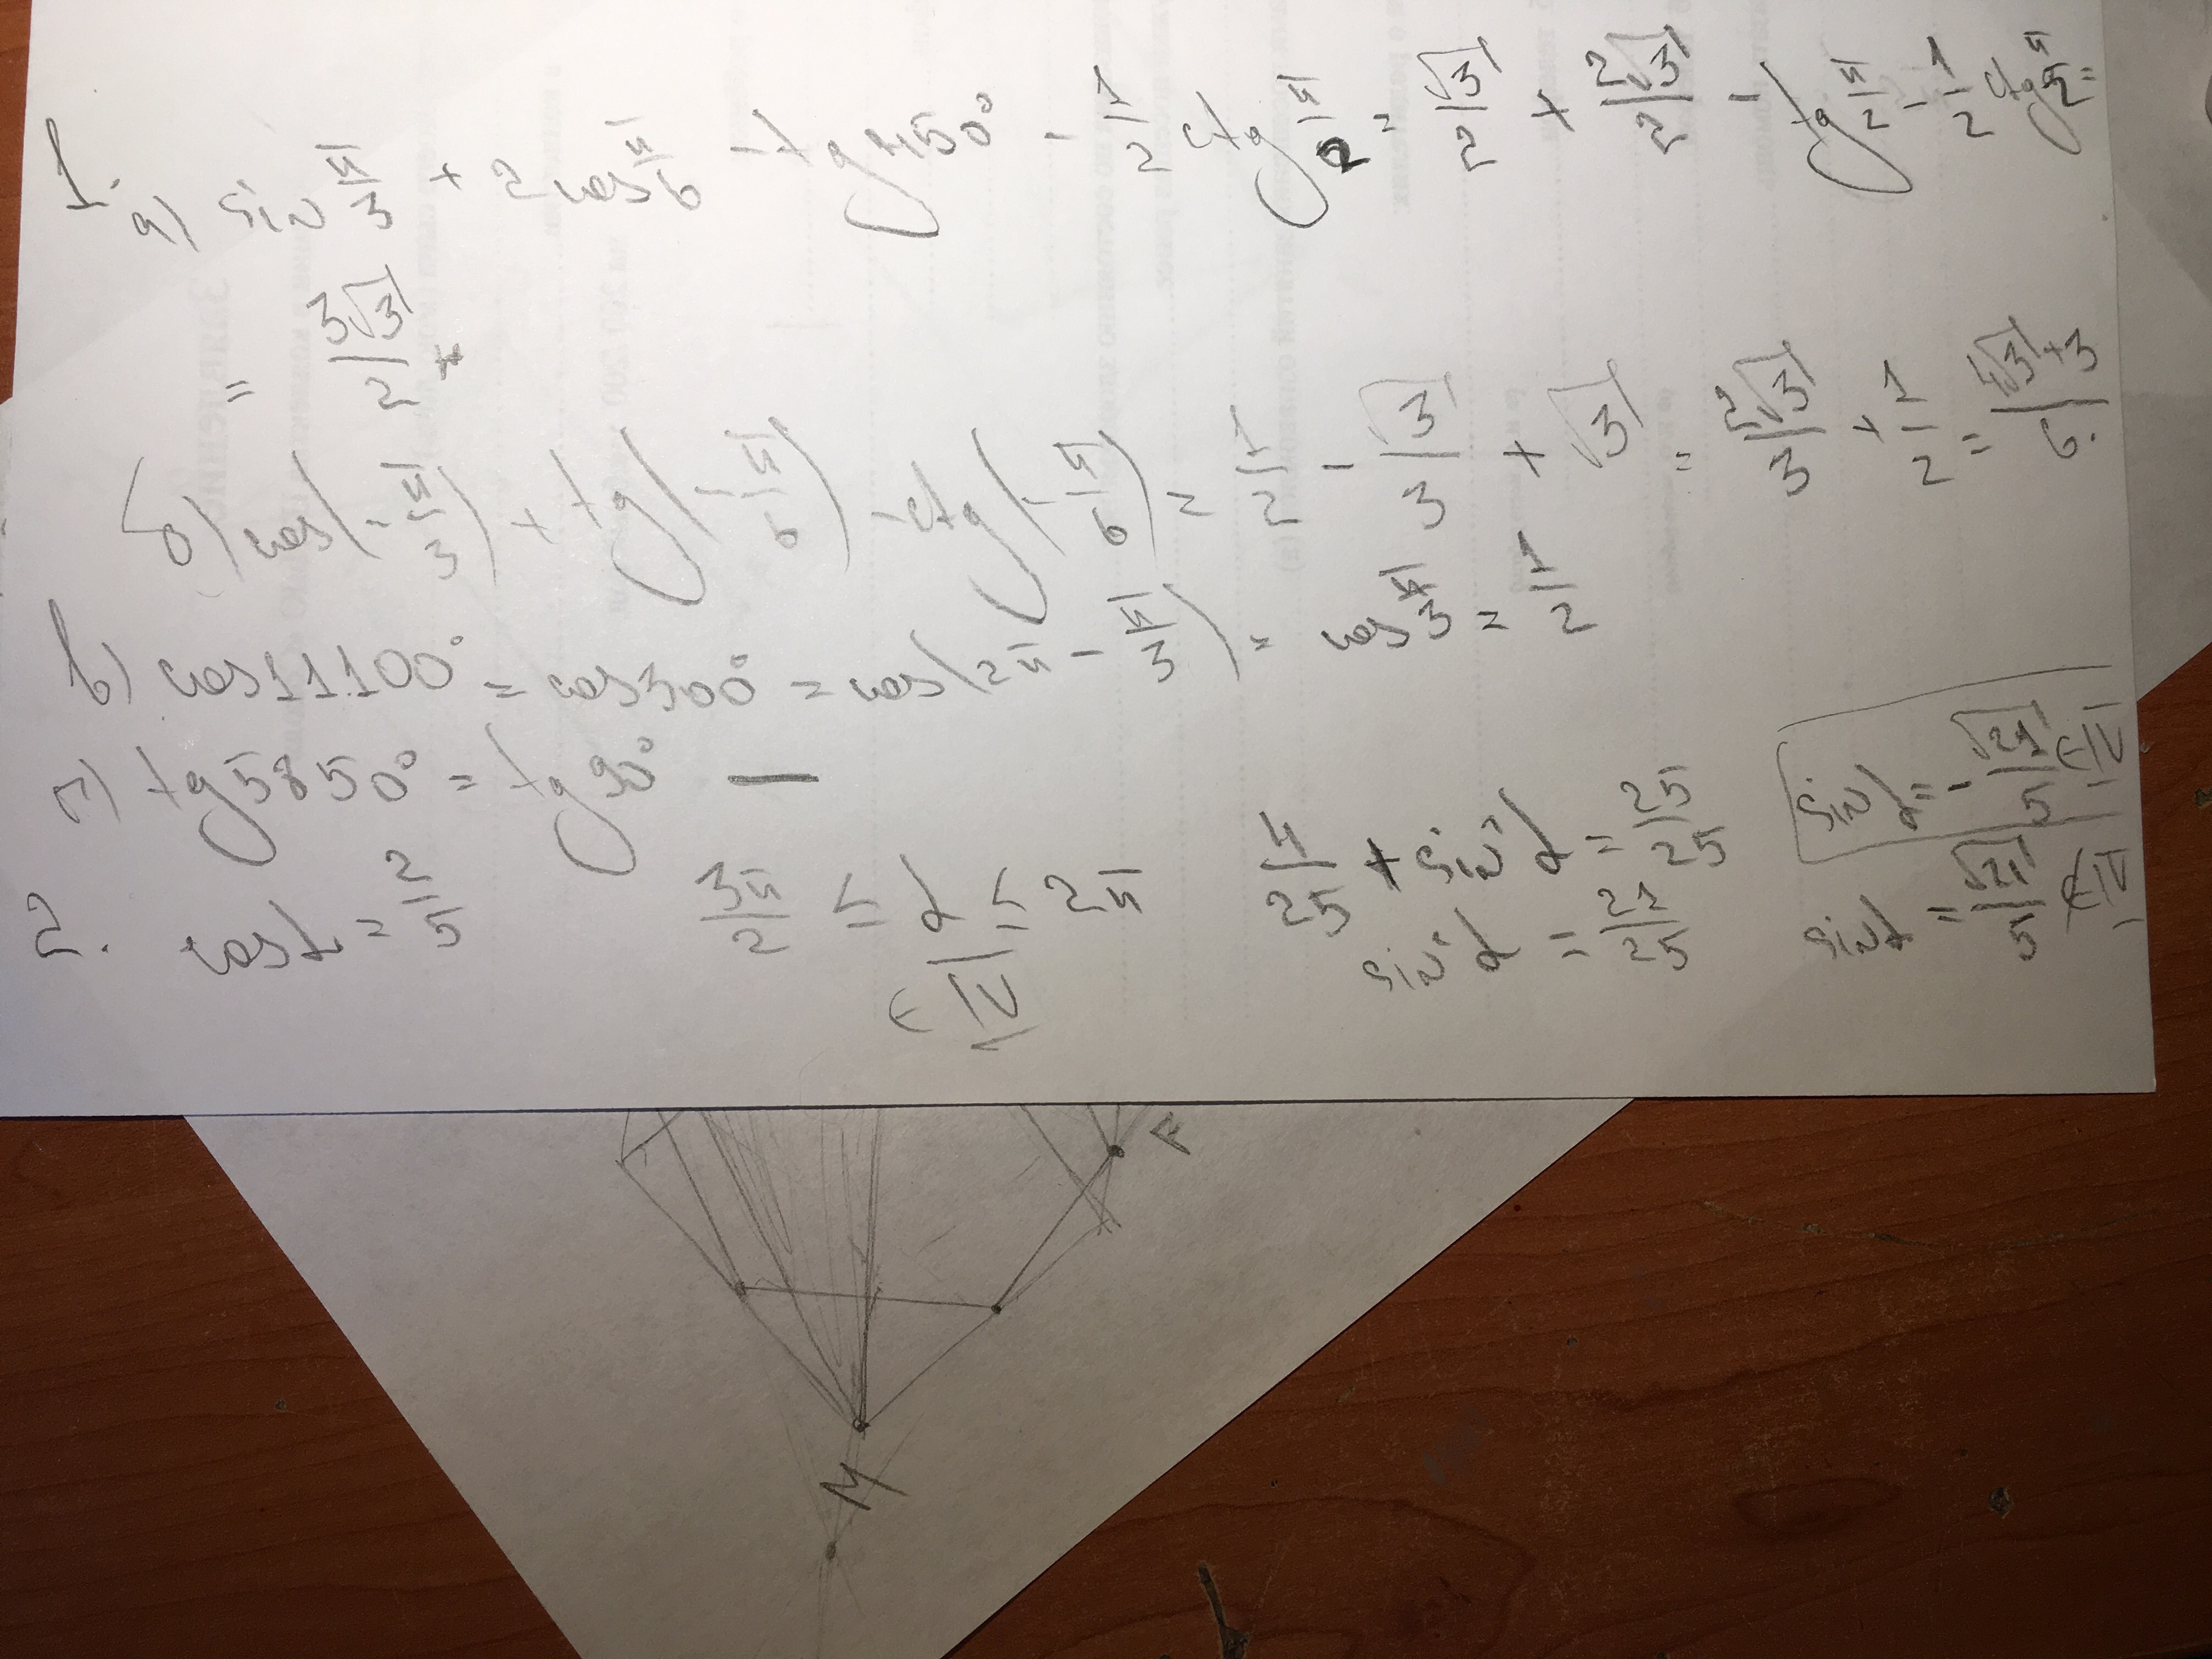 1.
а) sin π/3 + 2cos π/6 - tg 450° - 1/2 ctg π/2 = √3/2 + 2√3/2 - tg π/2 - 1/2 ctg π/2 =
= 3√3/2
б) cos(-π/3) + tg(-π/6) - ctg(-π/6) = 1/2 - √3/3 + √3 = 2√3/3 + 1/2 = 4√3+3/6.
в) cos11100° = cos300° = cos(2π - π/3) = cos π/3 = 1/2
г) tg5850° = tg90° —
2. cosα = 2/5 3π/2 ≤ α ≤ 2π 4/25 + sin²α = 25/25 sinα = -√21/5 ∈ IV
∈ IV sin²α = 21/25 sinα = √21/5 ∉ IV
F
M